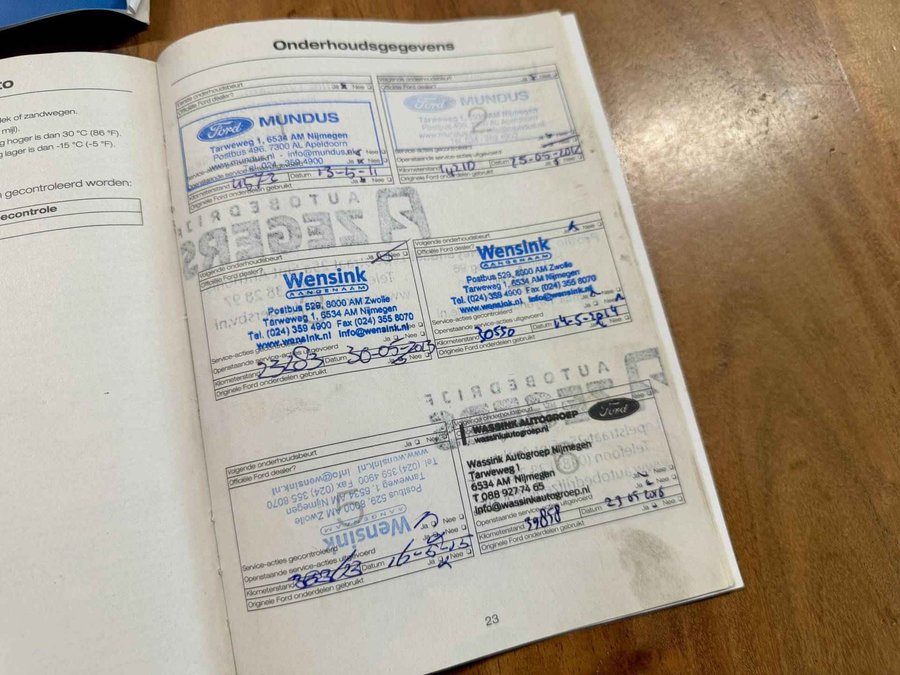 to
lek of zandwegen.
mij).
g hoger is dan 30 °C (86 °F).
g lager is dan -15 °C (-5 °F).
n gecontroleerd worden:
econtrole
Onderhoudsgegevens
Eerste onderhoudsbeurt
Officiële Ford dealer? Ja Nee
Ford MUNDUS
Tarweweg 1, 6534 AM Nijmegen
Postbus 496, 7300 AL Apeldoorn
www.mundus.nl - info@mundus.nl
Tel. 024 - 359 4900
Ja Nee
Kilometerstand Datum 13-5-11
Originele Ford onderdelen gebruikt Ja Nee
Volgende onderhoudsbeurt
Officiële Ford dealer? Ja Nee
Ford MUNDUS
2
Tarweweg 1, 6534 AM Nijmegen
Postbus
Service-acties gecontroleerd
Openstaande service-acties uitgevoerd
Kilometerstand 14210 Datum 25-05-2012
Originele Ford onderdelen gebruikt Ja Nee
Volgende onderhoudsbeurt
Officiële Ford dealer?
Wensink
AANGENAAM
Postbus 529, 8000 AM Zwolle
Tarweweg 1, 6534 AM Nijmegen
Tel. (024) 359 4900 Fax (024) 355 8070
www.wensink.nl info@wensink.nl
Service-acties gecontroleerd Ja Nee
Openstaande service-acties uitgevoerd
Kilometerstand 23283 Datum 30-05-2013
Originele Ford onderdelen gebruikt Ja Nee
Volgende onderhoudsbeurt
Officiële Ford dealer? Nee
Wensink
AANGENAAM
Postbus 529, 8000 AM Zwolle
Tarweweg 1, 6534 AM Nijmegen
Tel. (024) 359 4900 Fax (024) 355 8070
www.wensink.nl info@wensink.nl
Service-acties gecontroleerd Ja Nee
Openstaande service-acties uitgevoerd Ja Nee
Kilometerstand 30550 Datum 14-5-2014
Originele Ford onderdelen gebruikt Ja Nee
Volgende onderhoudsbeurt
Officiële Ford dealer? Ja Nee
Wensink
AANGENAAM
Postbus 529, 8000 AM Zwolle
Tarweweg 1, 6534 AM Nijmegen
Tel. (024) 359 4900 Fax (024) 355 8070
www.wensink.nl info@wensink.nl
5
Service-acties gecontroleerd Nee
Openstaande service-acties uitgevoerd Ja Nee
Kilometerstand Datum 16-5-15
Originele Ford onderdelen gebruikt Ja Nee
Volgende onderhoudsbeurt
WASSINK AUTOGROEP Ford
wassinkautogroep.nl
Wassink Autogroep Nijmegen
Tarweweg 1
6534 AM Nijmegen
T 088 927 74 65
info@wassinkautogroep.nl
Openstaande service-acties uitgevoerd Ja Nee
Kilometerstand 39858 Datum 23-05-2016
Originele Ford onderdelen gebruikt Ja Nee
AUTOBEDRIJF
ZEGERS
AUTOBEDRIJF
23